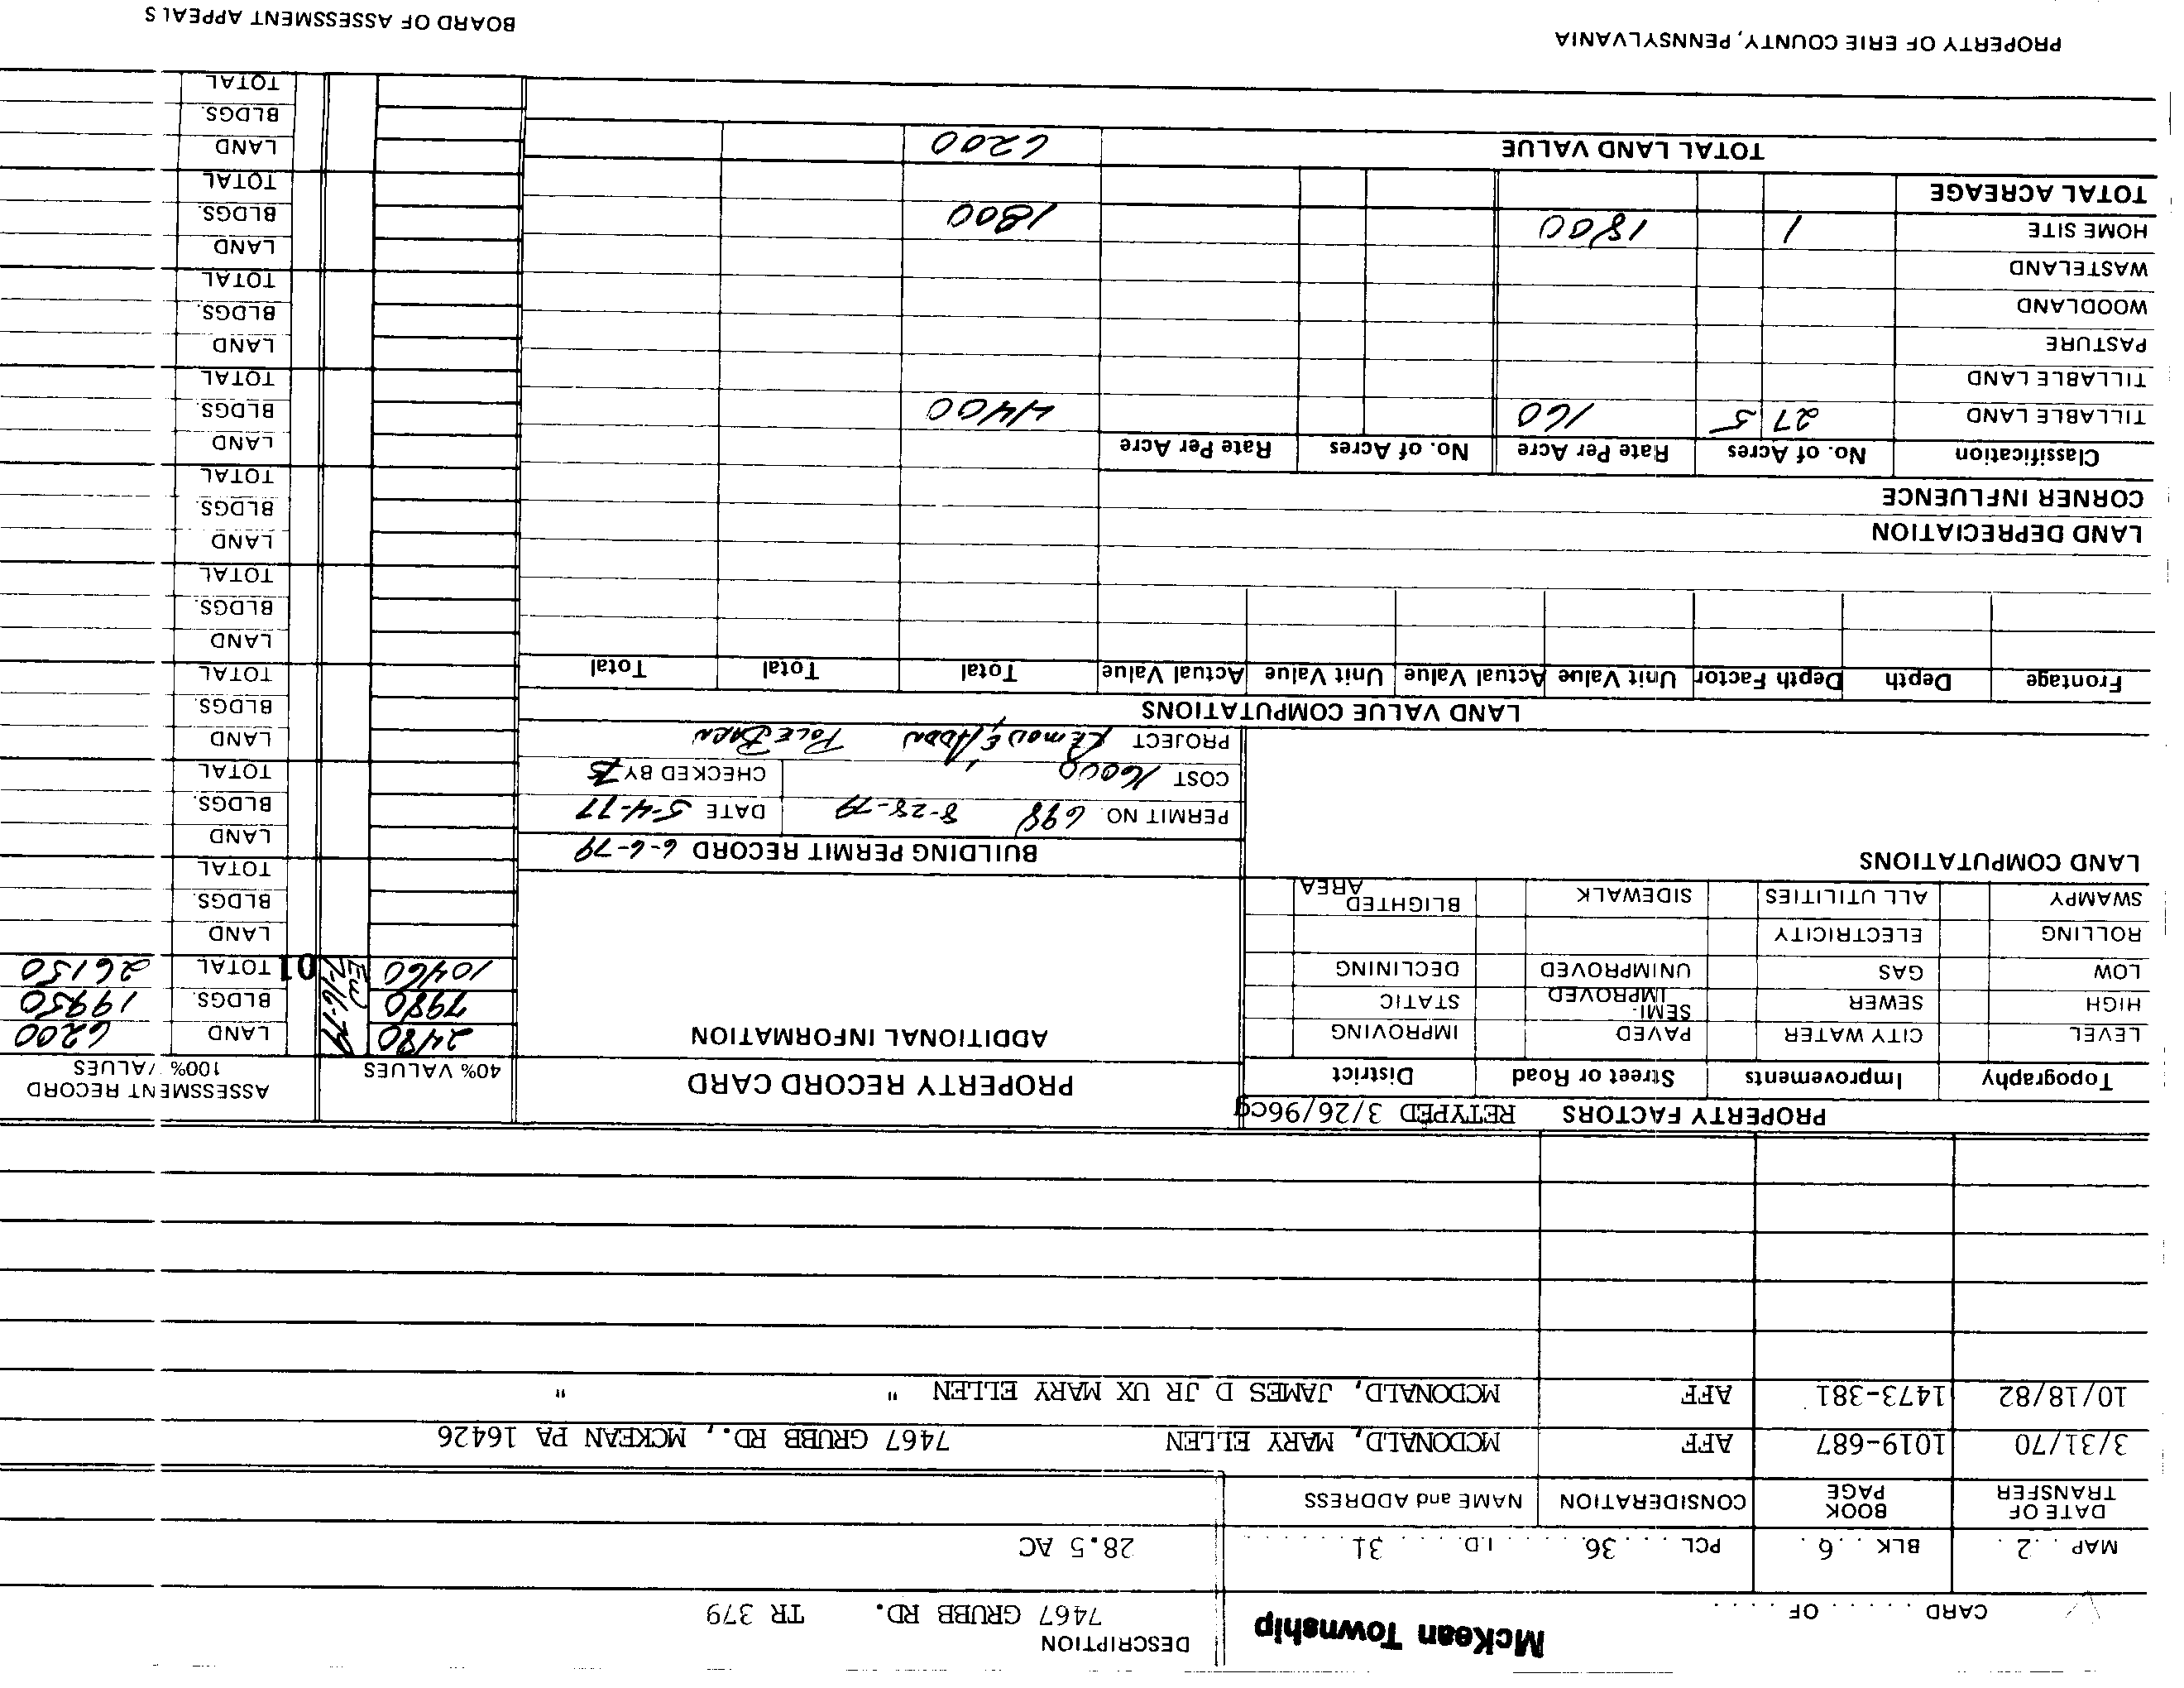 McKean Township
CARD ...... OF .....
DESCRIPTION
7467 GRUBB RD. TR 379
MAP ..2.. BLK ..6.. PCL ....36. ..... I.D. .... 31 ....... 28.5 AC
DATE OF TRANSFER BOOK PAGE CONSIDERATION NAME and ADDRESS
3/31/70 1019-687 AFF MCDONALD, MARY ELLEN 7467 GRUBB RD., MCKEAN PA 16426
10/18/82 1473-381 AFF MCDONALD, JAMES D JR UX MARY ELLEN " "
PROPERTY FACTORS RETYPED 3/26/96cg
Topography Improvements Street or Road District
LEVEL CITY WATER PAVED IMPROVING
HIGH SEWER SEMI-IMPROVED STATIC
LOW GAS UNIMPROVED DECLINING
ROLLING ELECTRICITY
SWAMPY ALL UTILITIES SIDEWALK BLIGHTED AREA
LAND COMPUTATIONS
PROPERTY RECORD CARD
ADDITIONAL INFORMATION
BUILDING PERMIT RECORD 6-6-79
PERMIT NO. 698 8-28-79 DATE 5-4-77
COST 16000 CHECKED BY
PROJECT REMODE/ADDN POLE BARN
40% VALUES ASSESSMENT RECORD 100% VALUES
2480 LAND 6200
7980 BLDGS. 19950
10460 01 TOTAL 26150
EW 7-16-79
LAND
BLDGS.
TOTAL
LAND
BLDGS.
TOTAL
LAND
BLDGS.
TOTAL
LAND
BLDGS.
TOTAL
LAND
BLDGS.
TOTAL
LAND
BLDGS.
TOTAL
LAND
BLDGS.
TOTAL
LAND
BLDGS.
TOTAL
LAND
BLDGS.
TOTAL
LAND VALUE COMPUTATIONS
Frontage Depth Depth Factor Unit Value Actual Value Unit Value Actual Value Total Total Total
LAND DEPRECIATION
CORNER INFLUENCE
Classification No. of Acres Rate Per Acre No. of Acres Rate Per Acre
TILLABLE LAND 27 5 160 4400
TILLABLE LAND
PASTURE
WOODLAND
WASTELAND
HOME SITE 1 1800 1800
TOTAL ACREAGE
TOTAL LAND VALUE 6200
PROPERTY OF ERIE COUNTY, PENNSYLVANIA BOARD OF ASSESSMENT APPEALS